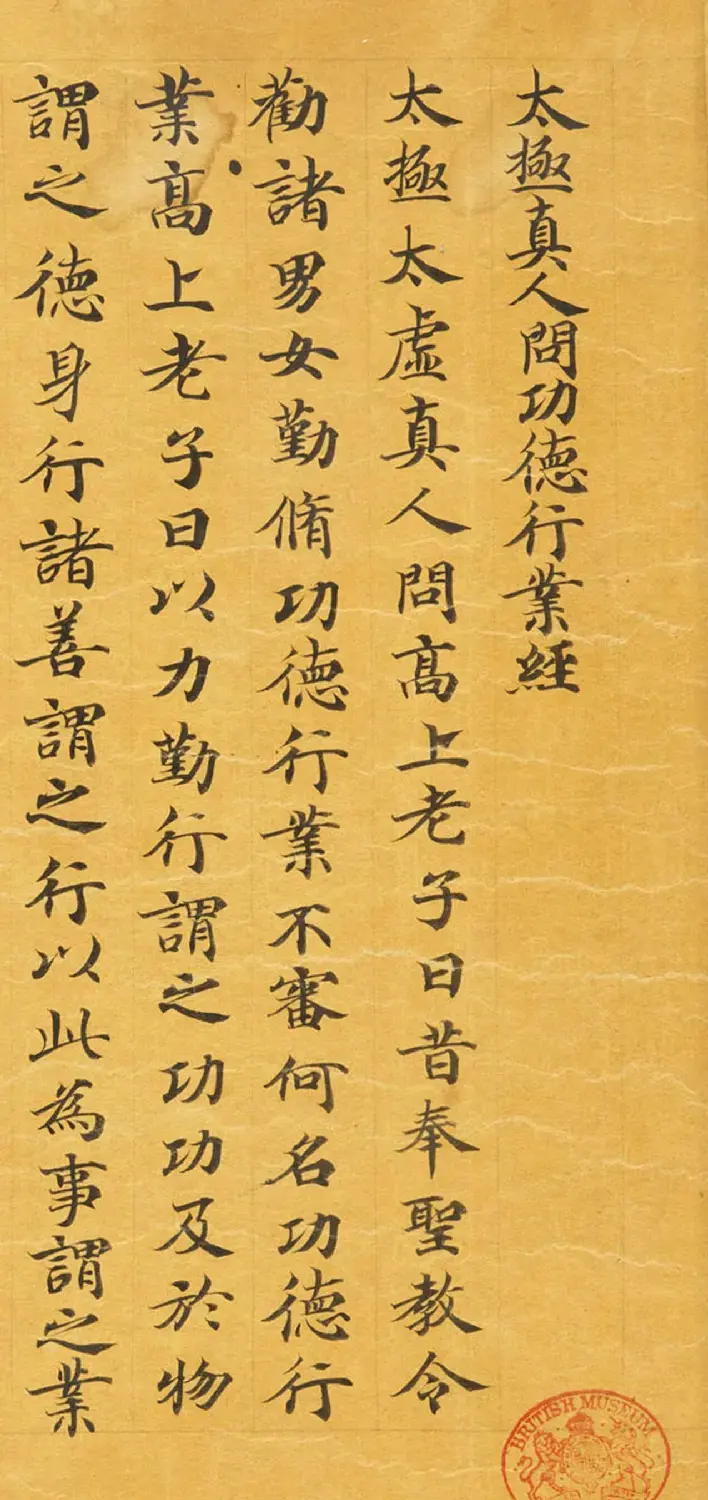 太極真人問功德行業經
太極太虛真人問髙上老子曰昔奉聖教令
勸諸男女勤脩功德行業不審何名功德行
業髙上老子曰以力勤行謂之功功及於物
謂之德身行諸善謂之行以此為事謂之業
BRITISH MUSEUM